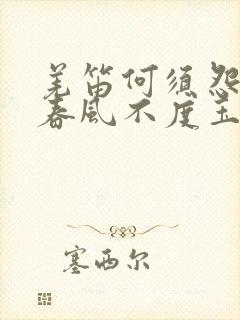 羌笛何须怨
春风不度玉
塞西尔